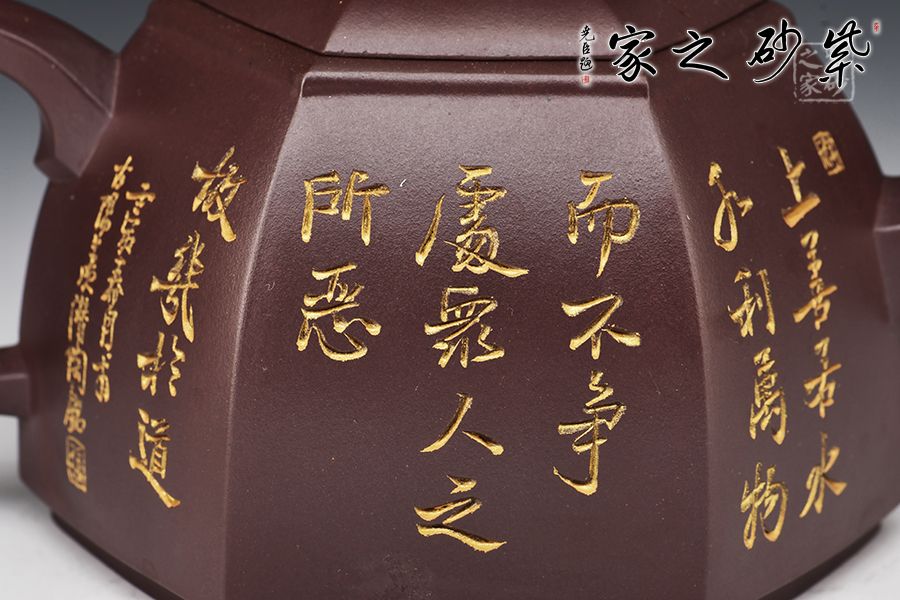 紫砂之家
堯臣題
之家
上善若水
水利萬物
而不爭
處眾人之
所惡
故幾於道